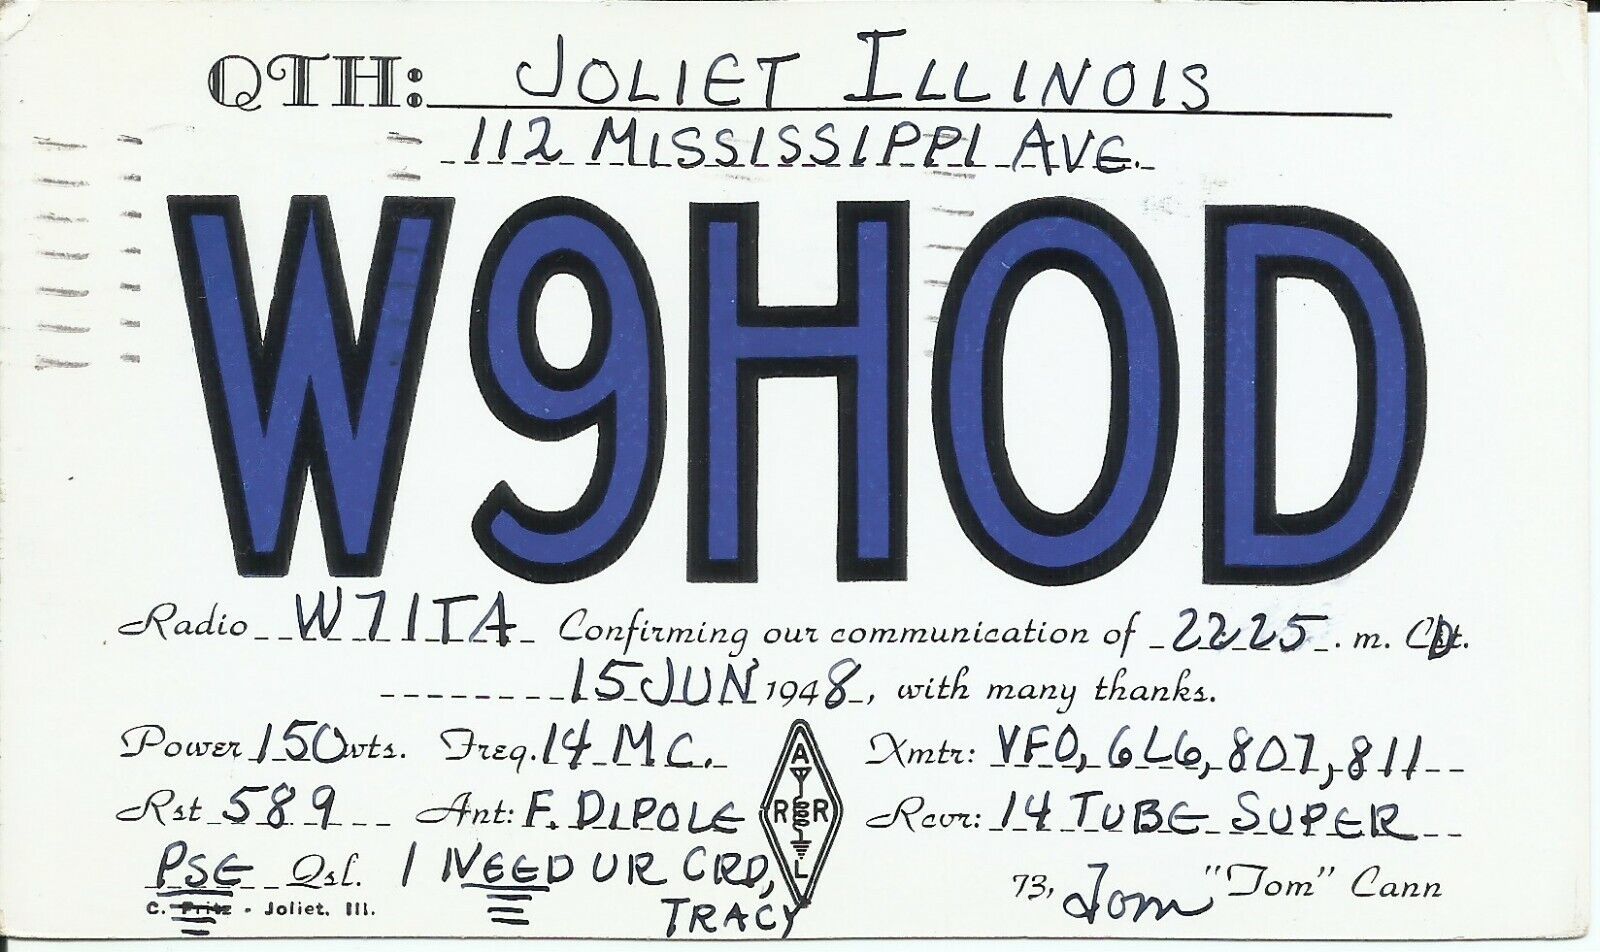 QTH: JOLIET ILLINOIS
112 MISSISSIPPI AVE.
W9HOD
Radio W7ITA Confirming our communication of 2225 . m. CDt.
15 JUN 1948, with many thanks.
Power 150 wts. Freq. 14 MC. Xmtr: VFO, 6L6, 807, 811
Rst 589 Ant: F. DIPOLE ARRL Rcvr: 14 TUBE SUPER
PSE Qsl. I NEED UR CRD, 73, Tom "Tom" Cann
C. Fritz - Joliet, Ill. TRACY